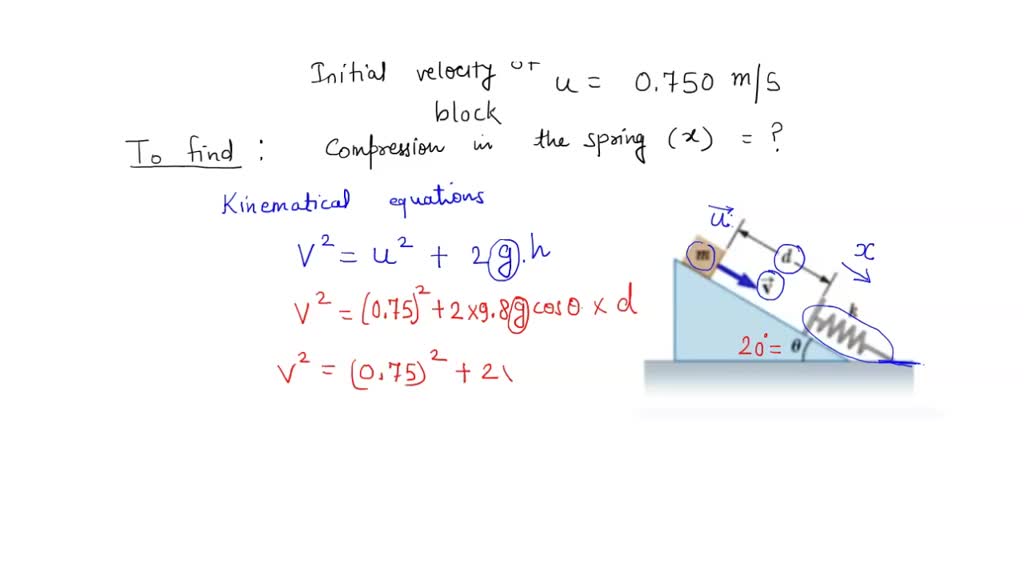 Initial velocity of u = 0.750 m/s
block
To find : Compression in the spring (x) = ?
Kinematical equations
V² = u² + 2g.h
V² = (0.75)² + 2×9.8g cosθ × d
V² = (0.75)² + 2(
u⃗
m
d
x
v⃗
k
20° = θ